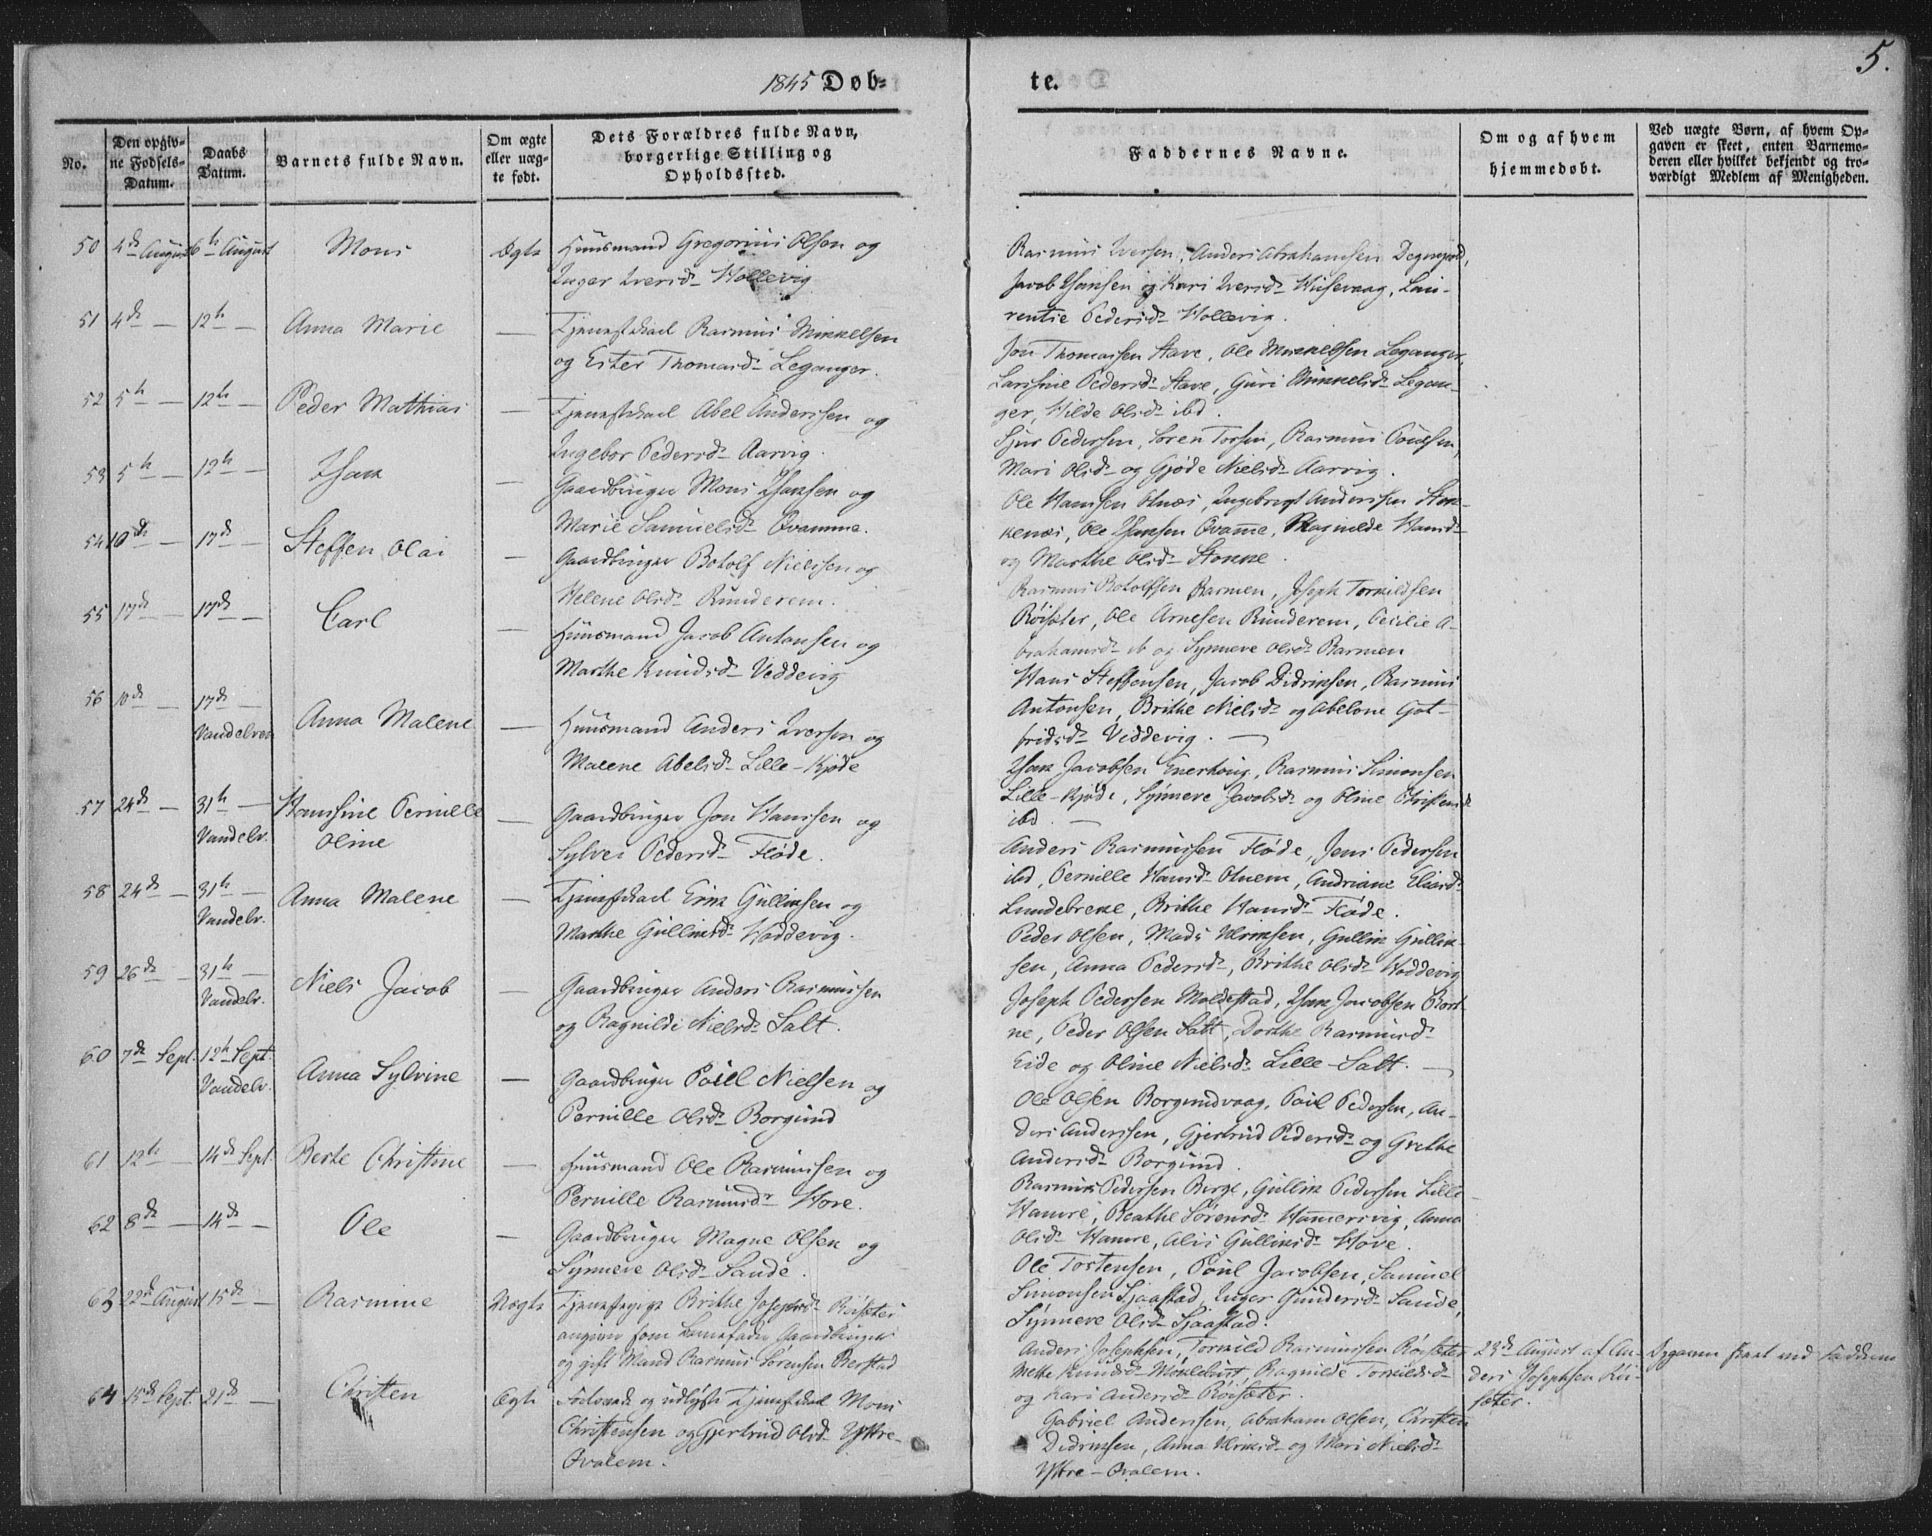 5.
1845 Døb-
te.
No.
Den opgiv-
ne Fødsels-
Datum.
Daabs
Datum.
Barnets fulde Navn.
Om ægte
eller uæg-
te født.
Dets Forældres fulde Navn,
borgerlige Stilling og
Opholdssted.
Faddernes Navne.
Om og af hvem
hjemmedøbt.
Ved uægte Børn, af hvem Op-
gaven er skeet, enten Barnemo-
deren eller hvilket bekjendt og tro-
værdigt Medlem af Menigheden.
50 4de August 6te August Mons Ægte Huusmand Gregorius Olsen og
Inger Iversd. Hollevig
Rasmus Iversen, Anders Abrahamsen Degnepold,
Jacob Hansen og Kari Iversd. Husevaag, Lau-
rentse Pedersd. Hollevig.
51 4de — 12te — Anna Marie — Tjenestkarl Rasmus Mikkelsen
og Ester Thomasd. Leganger.
Jon Thomassen Stave, Ole Mikkelsen Leganger,
Larsine Pedersd. Stave, Guri Mikkelsd. Legan-
ger, Hilde Olsd. ibd.
52 5te — 12te — Peder Mathias — Tjenestkarl Abel Anderssen og
Ingebor Pedersd. Aarvig.
Sjur Pedersen, Søren Torsen, Rasmus Poulsen,
Mari Olsd. og Gjøde Nielsd. Aarvig.
53 5te — 12te — Isak — Gaardbruger Mons Isaksen og
Marie Samuelsd. Qvamme.
Ole Hanssen Otnæs, Ingebrigt Anderssen Stok-
kenæs, Ole Isaksen Qvamme, Ragnilde Hansd.
og Marthe Olsd. Stokke.
54 10de — 17de — Steffen Olai — Gaardbruger Botolf Nielssen og
Helene Olsd. Runderem.
Rasmus Botolfsen Barmen, Joseph Torkildsen
Røisæter, Ole Arnesen Runderem, Cecilie A-
brahamsd. ib og Synneve Olsd. Barmen
55 17de — 17de — Carl — Huusmand Jacob Antonsen og
Marthe Knudsd. Veddevig
Hans Steffensen, Jacob Didriksen, Rasmus
Antonsen, Brithe Nielsd. og Abelone Got-
fridsd. Veddevig. —
56 10de — 17de —
Vandelven Anna Malene — Huusmand Anders Iversen og
Malene Abelsd. Lille-Kjøde
Isak Jacobsen Enerhoug, Rasmus Simonsen
Lille-Kjøde, Synneve Jacobsd. og Oline Christensd.
ibd. —
57 24de — 31te —
Vandelv. Hansine Pernille
Oline — Gaardbruger Jon Hanssen og
Sylvei Pedersd. Fløde.
Anders Rasmussen Fløde, Jens Pedersen
ibd, Pernille Hansd. Otnem, Andriane Eliasd.
Lundebrekke, Brithe Hansd. Fløde.
58 24de — 31te —
Vandelv. Anna Malene — Tjenestkarl Erik Gulliksen og
Marthe Gulliksd. Hoddevig.
Peder Olsen, Mads Ulriksen, Gullik Gullik-
sen, Anna Pedersd., Brithe Olsd. Hoddevig
59 26de — 31te —
Vandelv. Niels Jacob — Gaardbruger Anders Rasmussen
og Ragnilde Nielsd. Salt.
Joseph Pedersen Moldestad, Isak Jacobsen Bort-
ne, Peder Olsen Salt, Dorthe Rasmusd.
Eide og Oline Nielsd. Lille-Salt. —
60 7de Sept. 12te Sept.
Vandelv. Anna Sylvine — Gaardbruger Poul Nielsen og
Pernille Olsd. Borgund
Ole Olsen Borgundvaag, Poul Pedersen, An-
ders Anderssen, Gjertrud Pedersd. og Grethe
Andersd. Borgund.
61 12te — 14de Sept. Berte Christine — Huusmand Ole Rasmussen og
Pernille Rasmusd. Hove.
Rasmus Pedersen Berge, Gullik Pedersen Lille
Hamre, Beathe Sørensd. Hamersvig, Anna
Olsd. Hamre, Alis Gulliksd. Hove.
62 8de — 14de — Ole — Gaardbruger Magne Olsen og
Synneve Olsd. Sande.
Ole Tostensen, Poul Jacobsen, Samuel
Simonsen Sjaastad, Inger Gundersd. Sande,
Synneve Olsd. Sjaastad.
63 22de August 15de — Rasmine Uægte Tjenestepige Brithe Josephsd. Røisæter
angiver som Barnefader Gaardbruger
og gift Mand Rasmus Sørensen Berstad
Anders Josephsen, Torkild Rasmussen Røisæter
Mette Knudsd. Moklebust, Ragnilde Torkildsd.
og Kari Andersd. Røisæter.
23de August af An-
ders Josephsen Røi-
sæter.
Opgaven skeet ved Faddrene
64 15de Sept. 21de — Christen Ægte Forlovede og udlyste Tjenestkarl Mons
Christensen og Gjertrud Olsd. Yttre-
Qvalem.
Gabriel Anderssen, Abraham Olsen, Christen
Didriksen, Anna Ulriksd. og Mari Nielsd.
Yttre-Qvalem.